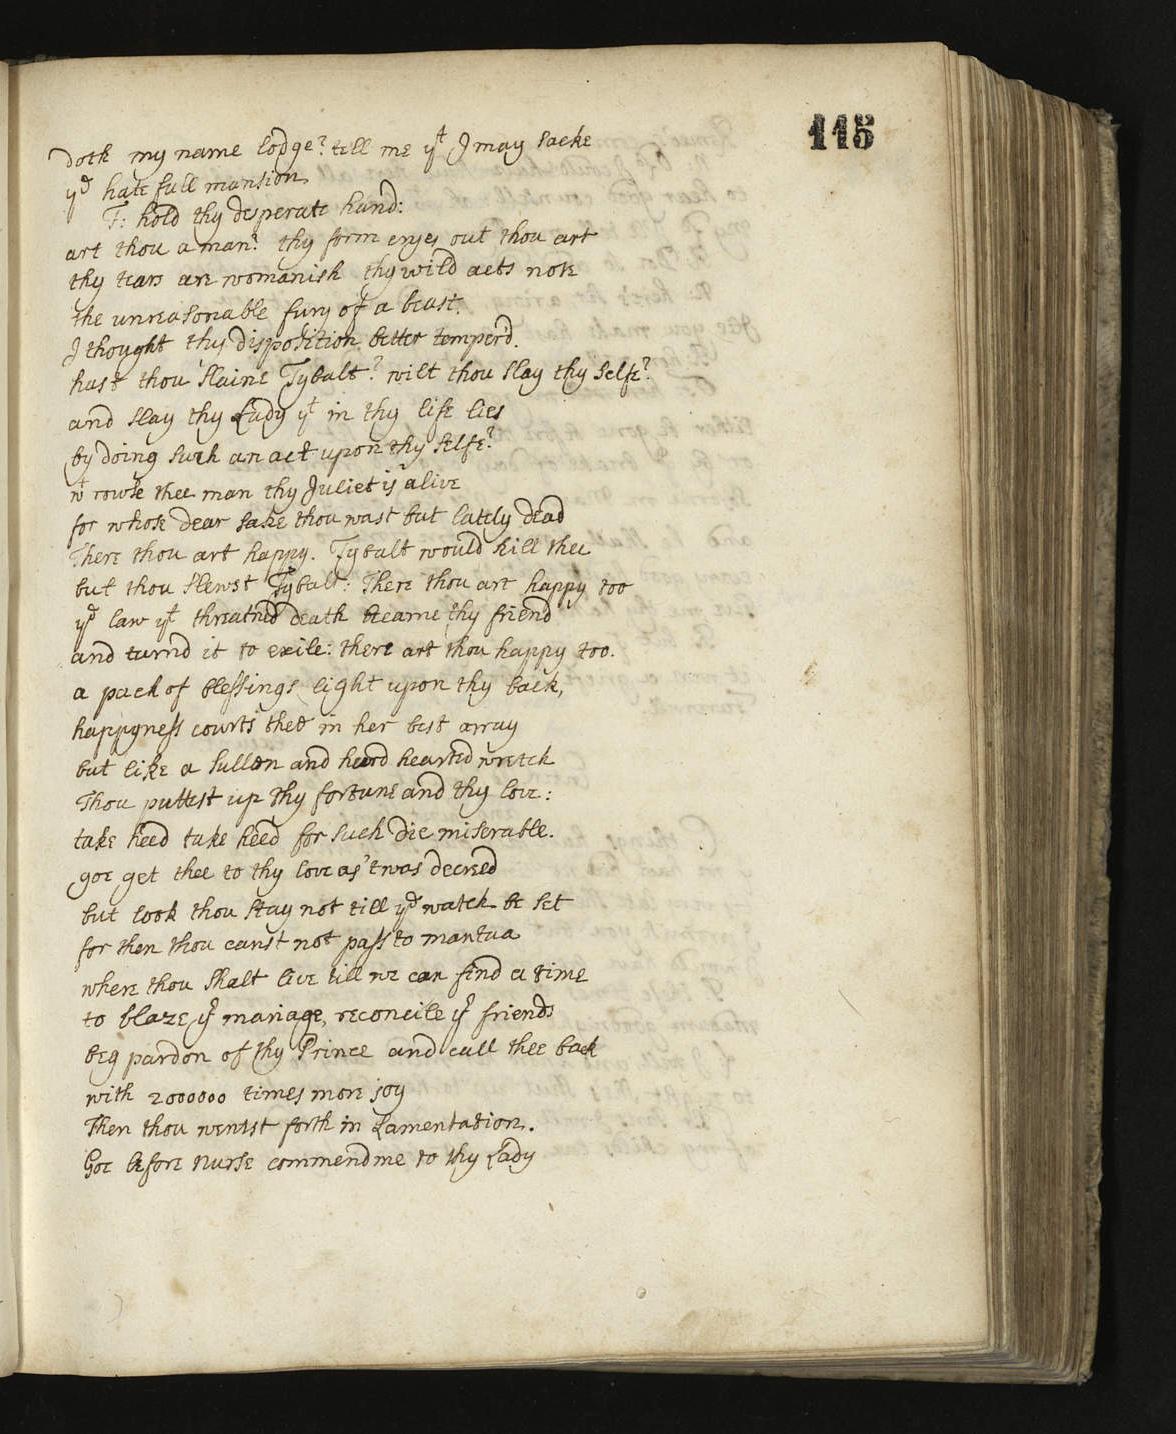 115
doth my name lodge? tell me yt I may sacke
ye hatefull mansion
F: hold thy desperate hand:
art thou a man? thy form cryes out thou art
thy tears are womanish thy wild acts note
the unreasonable fury of a beast.
I thought thy disposition better temperd.
hast thou slaine Tybalt? wilt thou slay thy selfe?
and slay thy Lady yt in thy life lies
by doing such an act upon thy selfe?
wt rowse thee man thy Juliet is alive
for whose dear sake thou wast but lately dead
There thou art happy. Tybalt would kill thee
but thou slewst Tybalt: There thou art happy too
ye law yt threatned death became thy friend
and turnd it to exile: there art thou happy too.
a pack of blessings light upon thy back,
happyness courts thee in her best array
but like a sullen and hard hearted wretch
Thou puttest up thy fortune and thy love:
take heed take heed for such die miserable.
goe get thee to thy love as 'twas decreed
but look thou stay not till ye watch be set
for then thou canst not pass to mantua
where thou shalt live till we can find a time
to blaze yr mariage, reconcile yr friends
beg pardon of thy Prince and call thee back
with 2000000 times more joy
Then thou wentst forth in Lamentation.
Goe before Nurse commend me to thy Lady